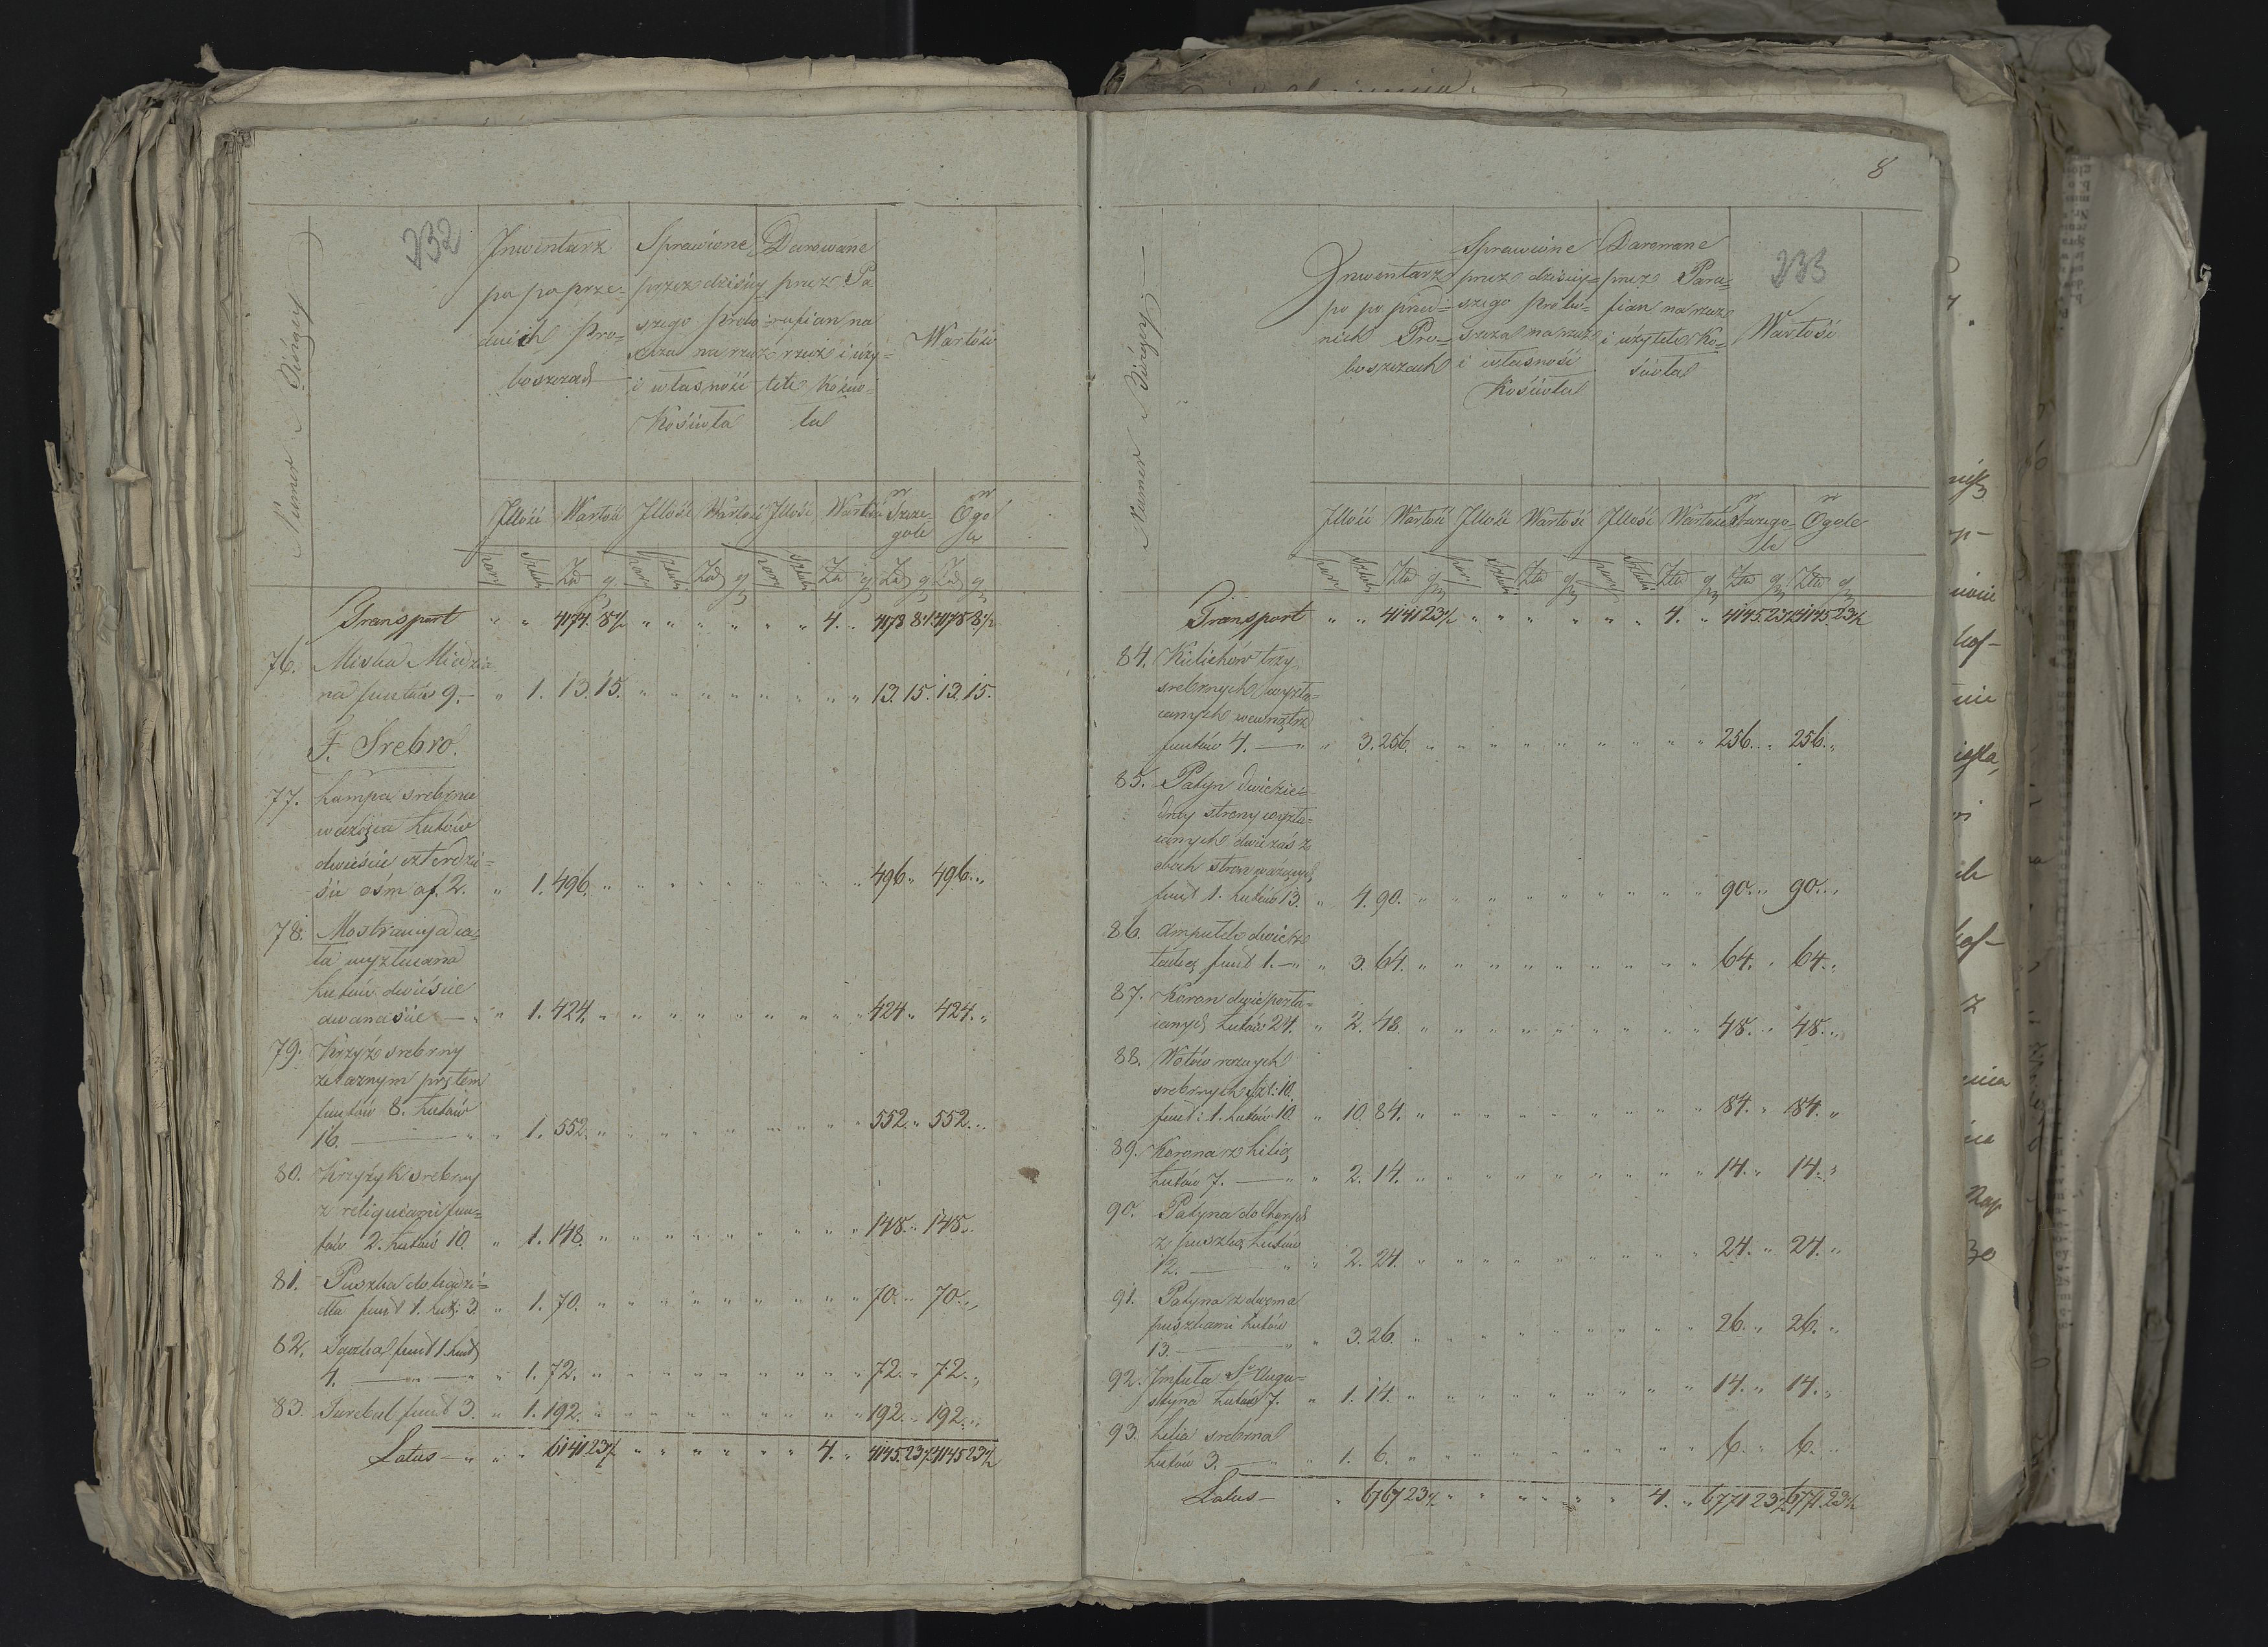 232
Numer Bieżący
Inwentarz
po poprze=
dnich Pro=
boszczach
Sprawione
przez dzisiey
szego Probo=
szcza na rzecz
i własność
Kościoła
Darowane
przez Pa
rafian na
rzecz i uży=
tek Kościo=
ła
Wartość
Illość Wartość Illość Wartość Illość Wartość
w Szcze=
gole
w Ogo
le
pary sztuki Złł g pary sztuki Złł g pary sztuki Złł g Złł g Złł g
Transport " " " " " " " " 4. "
76. Miska Miedzia
na funtów 9.— " 1. 13. 15. " " " " " " " " 13. 15. 13. 15.
F. Srebro.
77. Lampa srebrna
ważąca łutów
dwieście czterdzie=
ści ośm af. 2. " 1. 496. " " " " " " " " 496. " 496. "
78. Monstrancya ca=
ła wyzłacana
łutów dwieście
dwanaście — " 1. 424. " " " " " " " " 424. " 424. "
79. Krzyż srebrny
żelaznym prętem
funtów 8. łutów
16. — " 1. 552. " " " " " " " " 552. " 552. "
80. Krzyżyk srebrny
z reliquiami fun=
tów 2. łutów 10. " 1. 148. " " " " " " " " 148. " 148. "
81. Puszka do kadzi=
dła funt 1. łut: 3. " 1. 70. " " " " " " " " 70. " 70. "
82. funt 1. łut
4. — " 1. 72. " " " " " " " " 72. " 72. "
83. Turebal funt 3. " 1. 192. " " " " " " " " 192. " 192. "
Latus — " " 6141 23½ " " " " " " 4. "
8
233
Numer Bieżący
Inwentarz
po poprzed=
nich Pro=
boszczach
Sprawione
przez dzisiey=
szego Probo=
szcza na rzecz
i własność
Kościoła
Darowane
przez Para=
fian na rzecz
i użytek Ko=
ścioła
Wartość
Illość Wartość Illość Wartość Illość Wartość
w Szczego=
le
w Ogole
pary sztuki Złł gr pary sztuki Złł gr pary sztuki Złł gr Złł gr Złł gr
Transport " " 4141 23½ " " " " " " 4. " 4145. 23½ 4145. 23½
84. Kielichów trzy
srebrnych wyzła=
canych wewnątrz
funtów 4. — " 3. 256. " " " " " " " " 256. " 256. "
85. Patyn dwie z ie=
dney strony wyzła=
canych dwie zaś z
obóch stron ważących
funt 1. łutów 13. " 4. 90. " " " " " " " " 90. " 90. "
86. Ampułek dwie z
tacką funt 1. — " 3. 64. " " " " " " " " 64. " 64. "
87. Koron dwie pozła=
canych łutów 24. " 2. 48. " " " " " " " " 48. " 48. "
88. Wotów roznych
srebrnych szt: 10.
funt: 1. łutów 10. " 10. 84. " " " " " " " " 84. " 84. "
89. Korona z Lilią
łutów 7. — " 2. 14. " " " " " " " " 14. " 14. "
90. Patyna do chorych
z puszką łutów
12. — " 2. 24. " " " " " " " " 24. " 24. "
91. Patyna z dwoma
puszkami łutów
13. — " 3. 26. " " " " " " " " 26. " 26. "
92. Infuła Sgo Augu=
styna łutów 7. " 1. 14. " " " " " " " " 14. " 14. "
93. Lilia srebrna
łutów 3. — " 1. 6. " " " " " " " " 6. " 6. "
Latus — " 6767 23½ " " " " " " 4. " 6771 23½ 6771. 23½